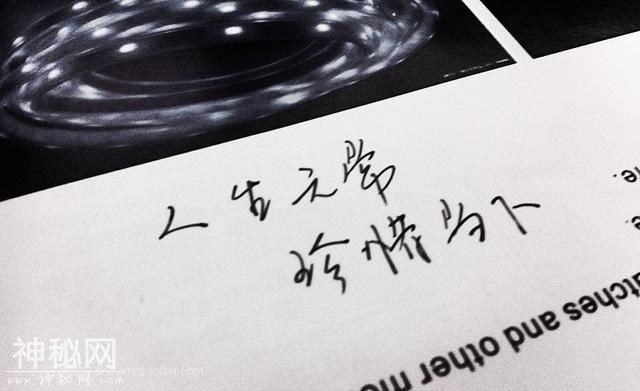 人生无常
珍惜当下
e.
e.
atches and other me
神秘网
www.神秘网.com